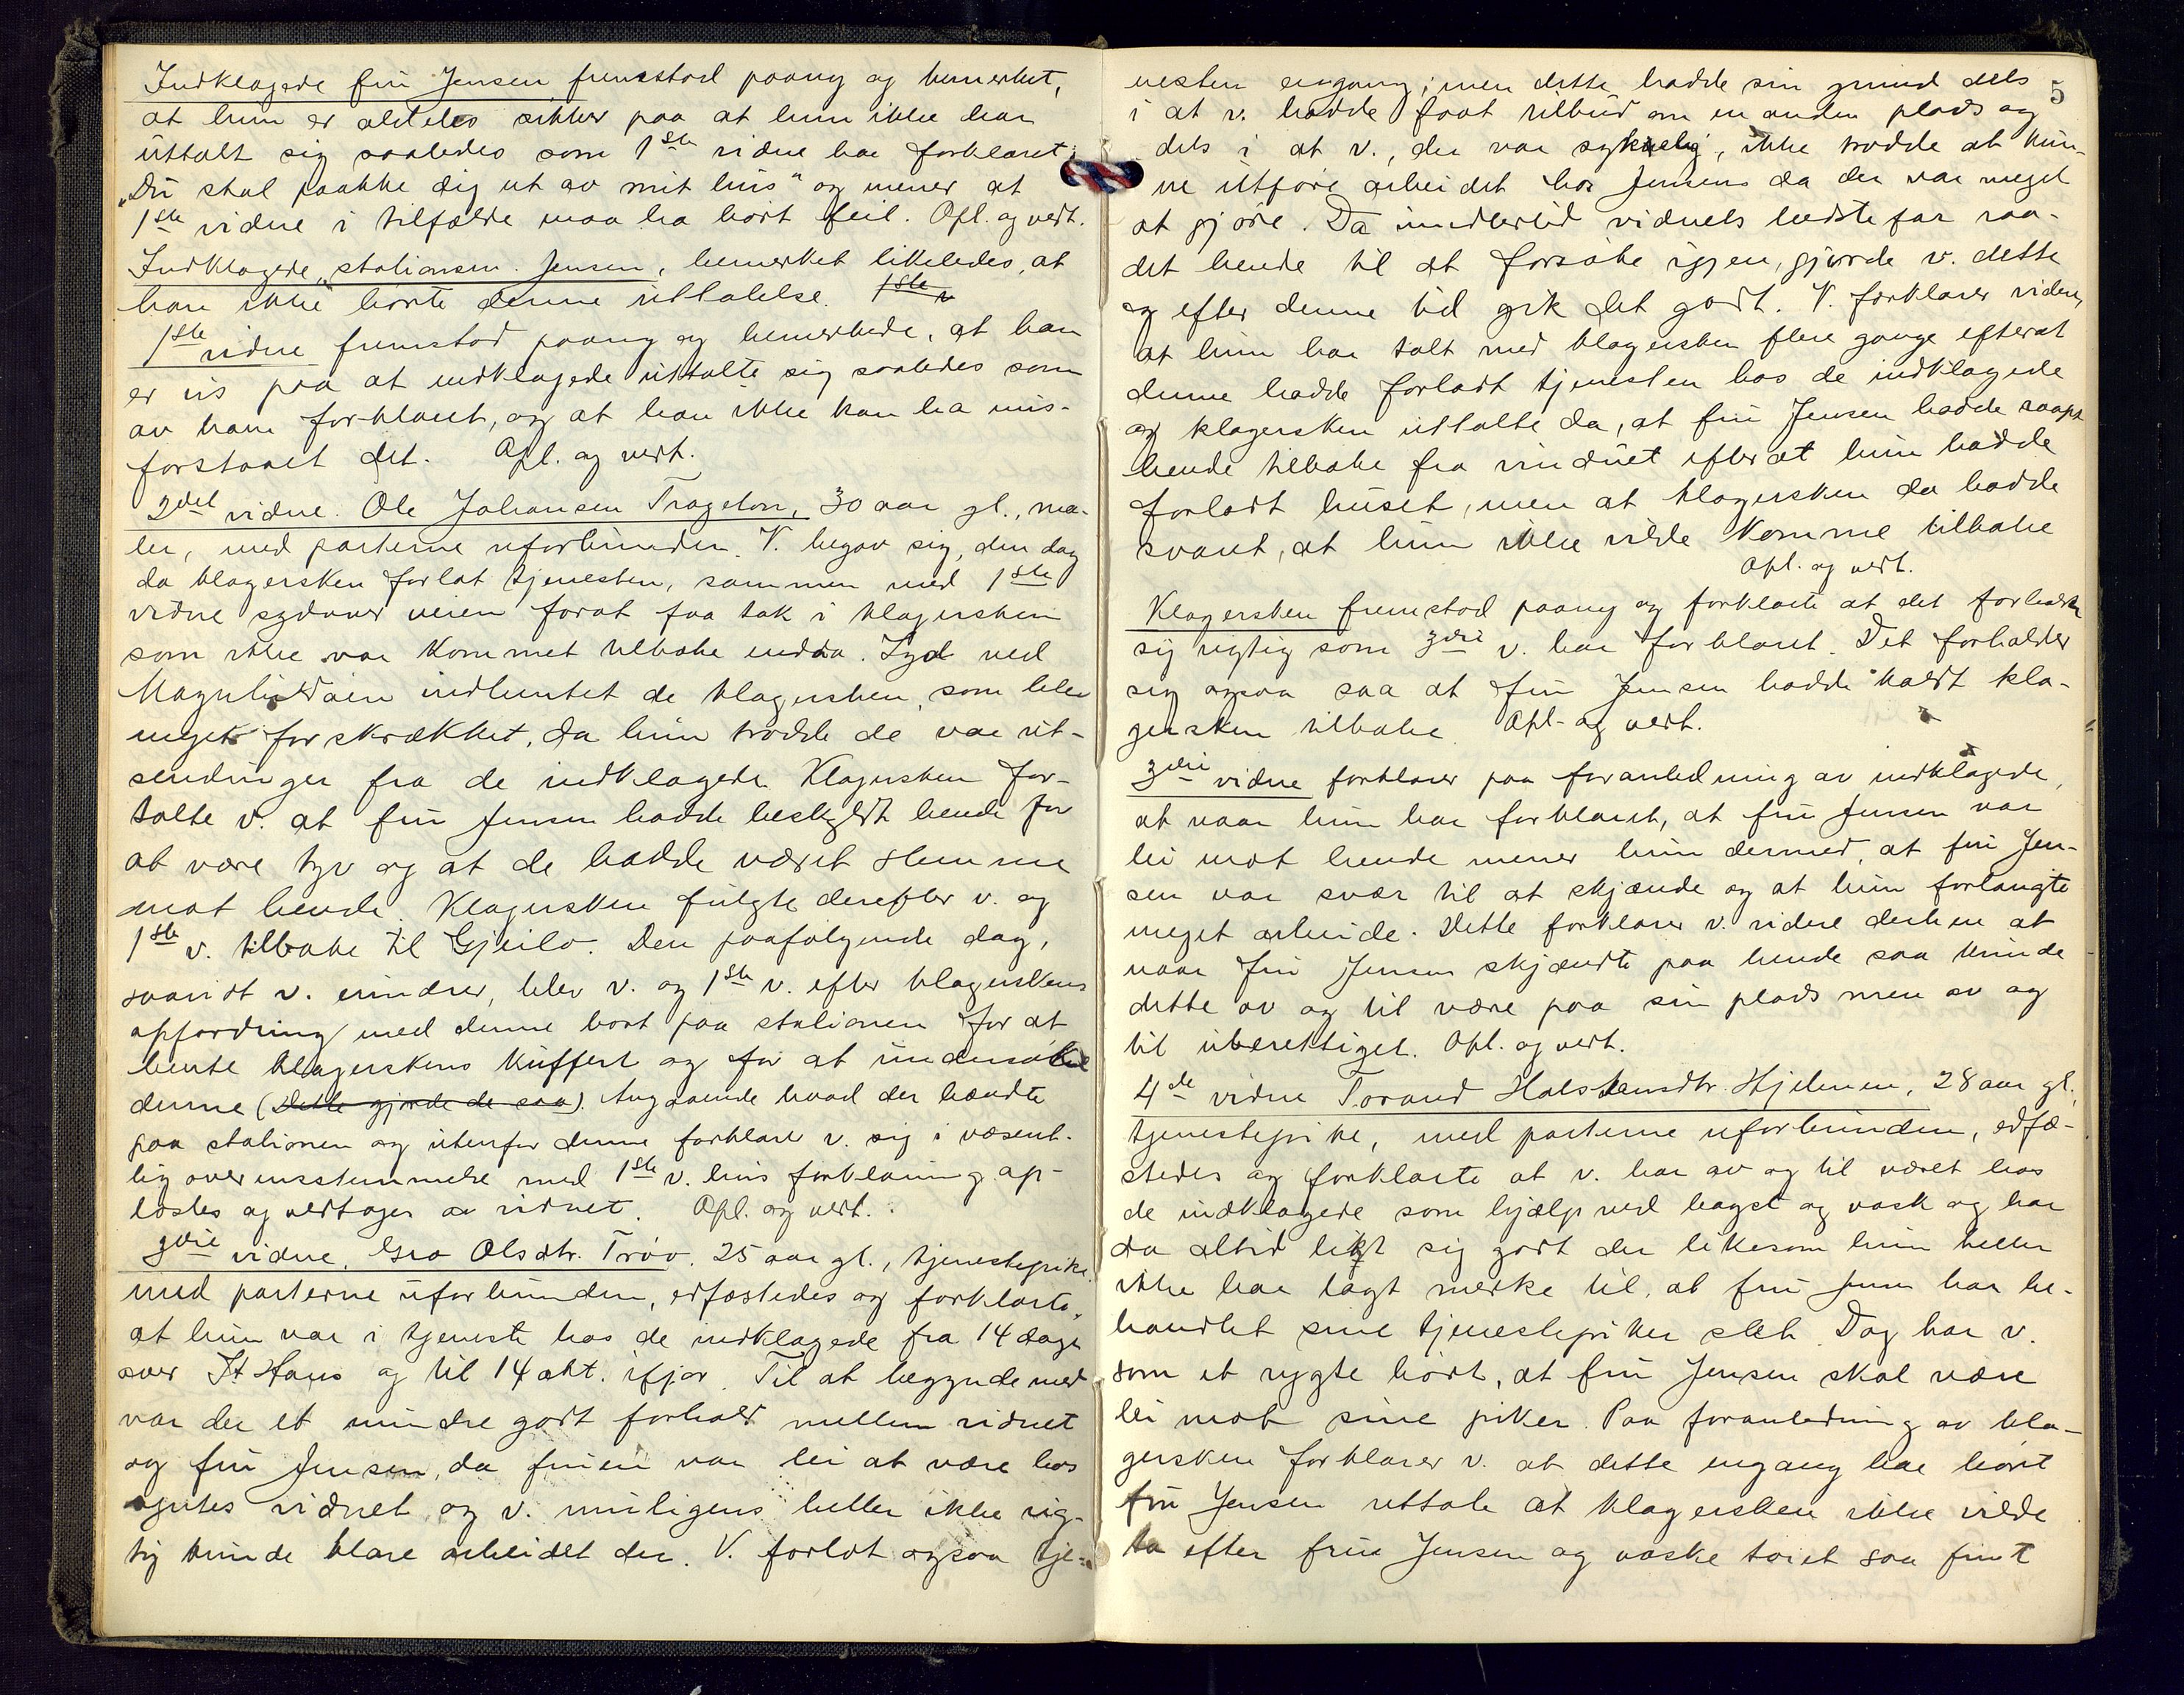 Indklagede fru Jensen fremstod paany og bemerket,
at hun er aldeles sikker paa at hun ikke har
uttalt sig saaledes som 1ste vidne har forklaret:
„Du skal pakke dig ut av mit hus" og mener at
1ste vidne i tilfælde maa ha hørt feil. Opl. og vedt.
Indklagede, stationsm. Jensen, bemerket likeledes, at
han ikke hørte denne uttalelse. 1ste v
1ste vidne fremstod paany og bemerkede, at han
er vis paa at indklagede uttalte sig saaledes som
av ham forklaret, og at han ikke kan ha mis-
forstaaet det. Opl. og vedt.
2det vidne. Ole Johansen Trageton, 30 aar gl., ma-
ler, med parterne uforbunden. V. begav sig, den dag
da klagersken forlot tjenesten, sammen med 1ste
vidne sydover veien forat faa tak i klagersken
som ikke var kommet tilbake endda. Syd ved
indhentet de klagersken, som blev
meget forskrækket, da hun trodde de var ut-
sendinger fra de indklagede. Klagersken for-
talte v. at fru Jensen hadde beskyldt hende for
at være tyv og at de hadde været slemme
mot hende. Klagersken fulgte derefter v. og
1ste v. tilbake til Gjeilo. Den paafølgende dag,
saavidt v. erindrer, blev v. og 1ste v. efter klagerskens
opfordring med denne bort paa stationen for at
hente klagerskens kuffert og for at undersøke
denne (Dette gjorde de saa). Angaaende hvad der hændte
paa stationen og utenfor denne forklarer v. sig i væsent-
lig overensstemmelse med 1ste v. hvis forklaring op-
læstes og vedtages av vidnet. Opl. og vedt.
3die vidne, Gro Olsdtr. Trøo, 25 aar gl., tjenestepike,
med parterne uforbunden, edfæstedes og forklarte,
at hun var i tjeneste hos de indklagede fra 14 dage
over St Hans og til 14 okt. ifjor. Til at begynde med
var der et mindre godt forhold mellem vidnet
og fru Jensen, da fruen var lei at være hos
syntes vidnet, og v. muligens heller ikke rig-
tig kunde klare arbeidet der. V. forlot ogsaa tje-
5
nesten engang; men dette hadde sin grund dels
i at v. hadde faat tilbud om en anden plads og
dels i at v., der var sykelig, ikke trodde at kun-
ne utføre arbeidet hos Jensens da der var meget
at gjøre. Da imidlertid vidnets bedstefar raa-
det hende til at forsøke igjen, gjorde v. dette
og efter denne tid gik det godt. V. forklarer videre,
at hun har talt med klagersken flere gange efterat
denne hadde forladt tjenesten hos de indklagede
og klagersken uttalte da, at fru Jensen hadde raapt
hende tilbake fra vinduet efterat hun hadde
forladt huset, men at klagersken da hadde
svaret, at hun ikke vilde komme tilbake
Opl. og vedt.
Klagersken fremstod paany og forklarte at det forholdt
sig rigtig som 3die v. har forklaret. Det forholder
sig ogsaa saa at fru Jensen hadde kaldt kla-
gersken tilbake. Opl. og vedt.
3die vidne forklarer paa foranledning av indklagede,
at naar hun har forklaret, at fru Jensen var
lei mot hende mener hun dermed, at fru Jen-
sen var svær til at skjænde og at hun forlangte
meget arbeide. Dette forklarer v. videre derhen at
naar fru Jensen skjændte paa hende saa kunde
dette av og til være paa sin plads men av og
til uberettiget. Opl. og vedt.
4de vidne Torand Halstensdtr. Hjelmen, 28 aar gl.,
tjenestepike, med parterne uforbunden, edfæ-
stedes og forklarte at v. har av og til været hos
de indklagede som hjælp ved bagst og vask og har
da altid likt sig godt der likesom hun heller
ikke har lagt merke til, at fru Jensen har be-
handlet sine tjenestepiker slet. Dog har v.
som et rygte hørt, at fru Jensen skal være
lei mot sine piker. Paa foranledning av kla-
gersken forklarer v. at dette engang har hørt
fru Jensen uttale at klagersken ikke vilde
ta efter fru Jensen og vaske tøiet saa fint